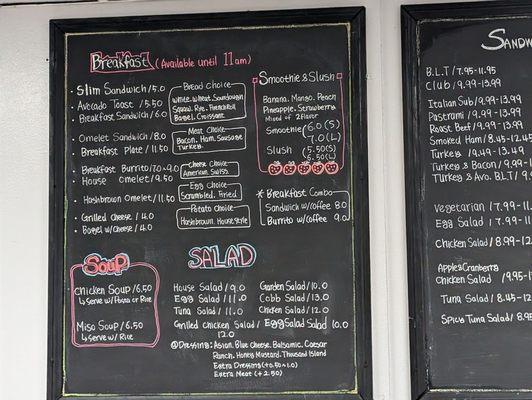 Breakfast (Available until 11am)
Slim Sandwich / 5.0
Avocado Toast / 5.50
Breakfast Sandwich / 6.0
Omelet Sandwich / 8.0
Breakfast Plate / 11.50
Breakfast Burrito / 7.0 ~ 9.0
House Omelet / 9.50
Hashbrown Omelet / 11.50
Grilled Cheese / 4.0
Bagel w/ Cheese / 4.0
Bread Choice
White, Wheat, Sourdough
Squaw, Rye, Frenchroll
Bagel, Croissant
Meat Choice
Bacon, Ham, Sausage
Turkey
Cheese Choice
American, Swiss,
Egg Choice
Scrambled, Fried
Potato Choice
Hashbrown, House style
Smoothie & Slush
Banana, Mango, Peach
Pineapple, Strawberry
Mixed of 2 flavor
Smoothie 6.0 (S)
7.0 (L)
Slush 5.50 (S)
6.50 (L)
* Breakfast Combo
Sandwich w/ coffee 8.0
Burrito w/ Coffee 9.0
Soup
Chicken Soup / 6.50
↳ Serve w/ or Rice
Miso Soup / 6.50
↳ Serve w/ Rice
SALAD
House Salad / 9.0
Egg Salad / 11.0
Tuna Salad / 11.0
Grilled Chicken Salad / 12.0
Garden Salad / 10.0
Cobb Salad / 13.0
Chicken Salad / 12.0
Egg Salad Salad 10.0
@ Dressing: Asian, Blue Cheese, Balsamic, Caesar
Ranch, Honey Mustard, Thousand Island
Extra Dressing (+0.50~1.0)
Extra Meat (+2.50)
SANDW
B.L.T / 7.95-11.95
Club / 9.99-13.99
Italian Sub / 9.99-13.99
Pastrami / 9.99-13.99
Roast Beef / 9.99-13.99
Smoked Ham / 8.45-12.45
Turkey / 9.49-13.49
Turkey & Bacon / 9.99-
Turkey & Avo. BLT / 9.
Vegetarian / 7.99-11.
Egg Salad / 7.99-11
Chicken Salad / 8.99-12
Apple & Cranberry
Chicken Salad / 9.95-1
Tuna Salad / 8.45-12
Spicy Tuna Salad / 8.95